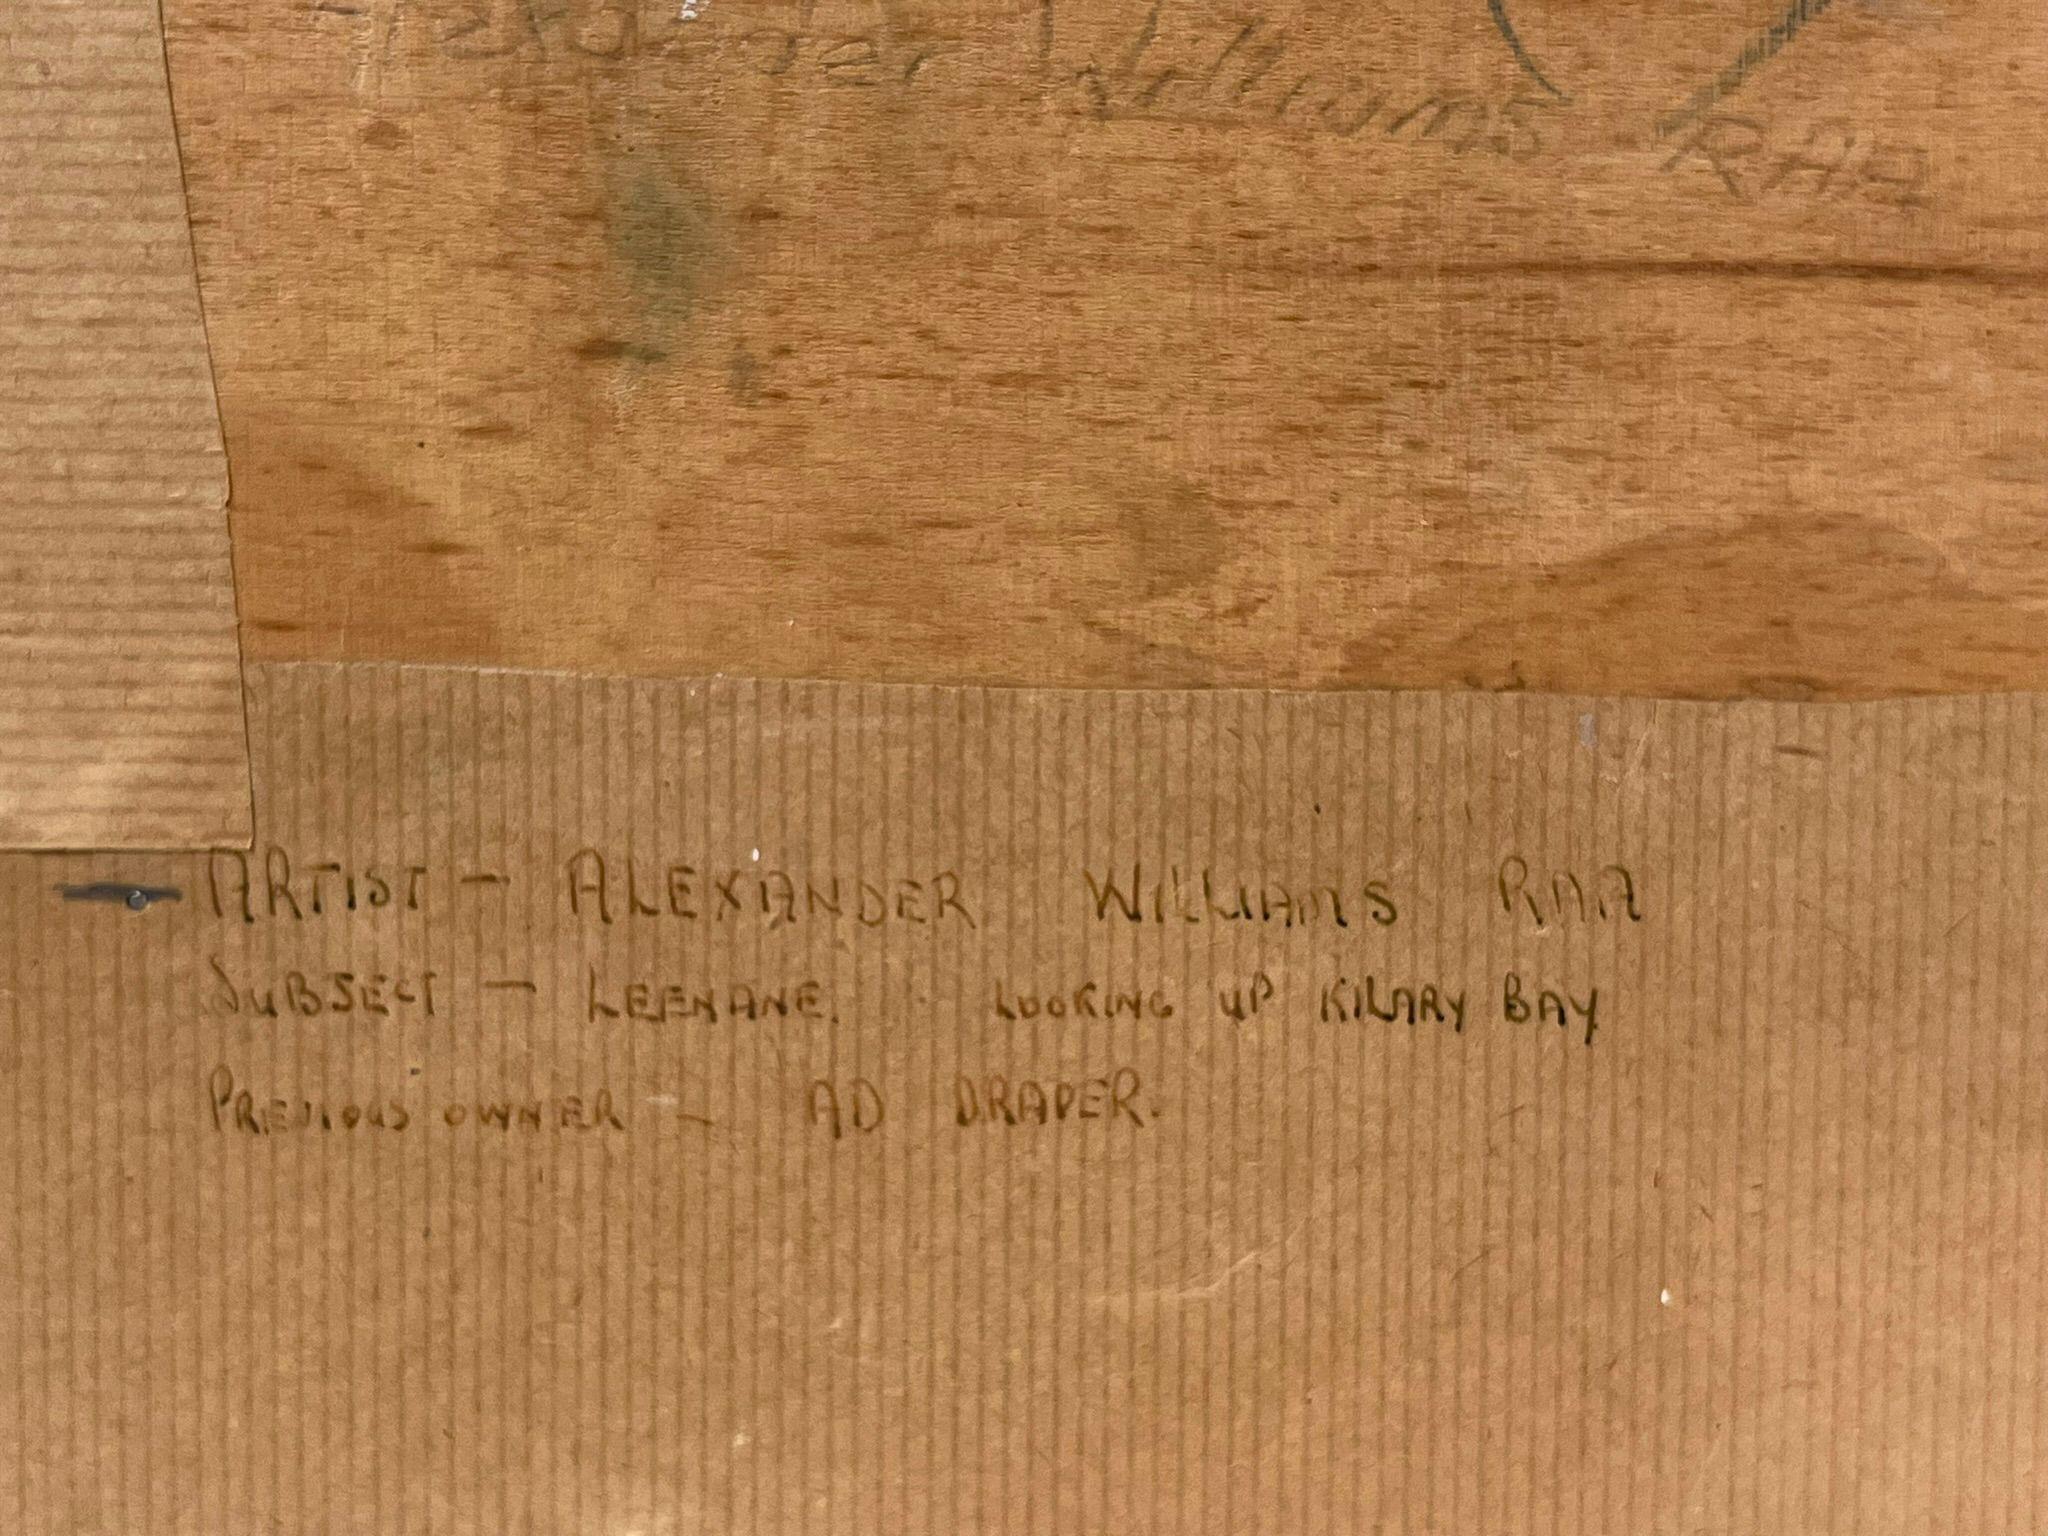 Alexander Williams RHA
ARTIST — ALEXANDER WILLIAMS RAA
SUBJECT — LEENANE. LOOKING UP KILARY BAY
PREVIOUS OWNER — AD DRAPER.